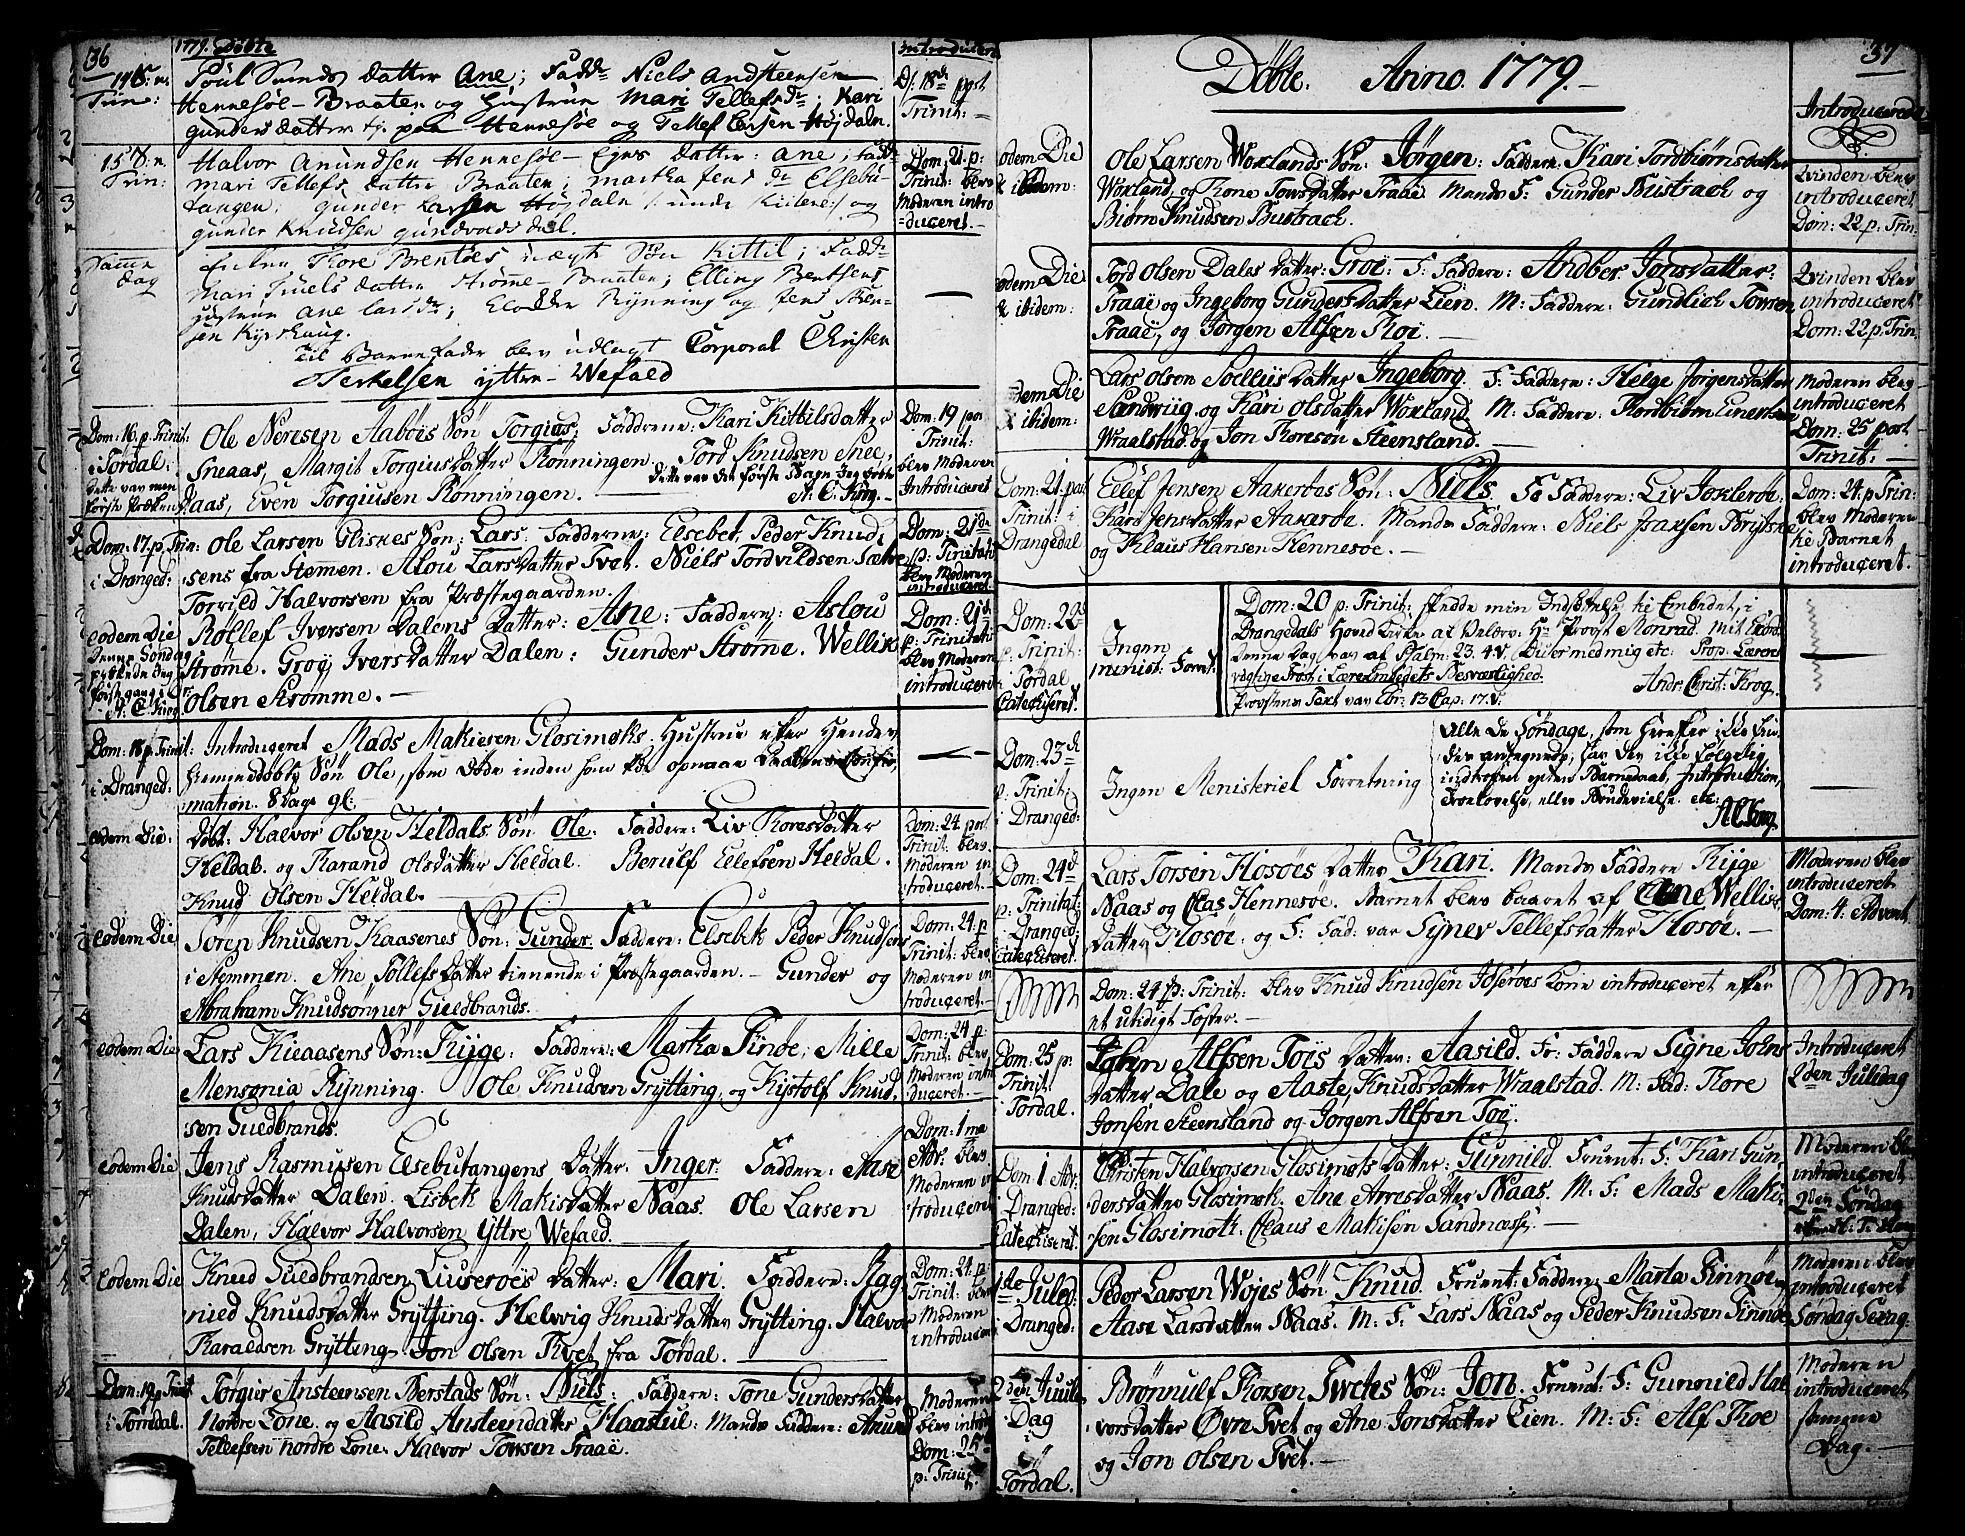 36
1779. Döbte
Introducera
14 S: n.
Trin:
Poul Svends datter Ane; Fadd: Niels Andsteensen
Hennesöe-Braaten og Hustrue Mari Tellefsdr; Kari
gundersdatter tj. paa Hennesöe og Tellef Larsen Höjdaln.
D: 18de post
Trinit:
15 S: n.
Trin:
Halvor Amundsen Hennesöe-Ejes datter: Ane; Fadd:
Mari Tellefsdatter Braaten; Martha Jens dr Elsebu-
tangen; gunder Larsen Höjdaln og
gunder Knudsen gundersdal.
Dom: 21. p:
Trinit: blev
Moderen intro
duceret.
Samme
dag
Enken Thore Brentöes uægt Sön Kittil; Fadd:
Mari Niels datter Strömme-Braaten; Elling Bentsens
Hustrue Ane Larsdr; Elodde Rynning og Jens
sen Kjershaug.
Til Barnefader blev udlagt Corporal Christen
Terkelsen yttre-Wefald
Dom: 16. p. Trinit:
i Tördal.
Dette var min
förste Præken
Ole Neresen Aaböes Sön Torgius; Faddrene: Kari Kittilsdatter
Sneaas, Margit Torgiusdatter Rönningen. Tord Knudsen Snee,
Daas, Even Torgiusen Rönningen.
Dette var det förste Barn Jeg döbte
A. C. Krog.
Dom: 19 post
Trinit:
blev Moderen
Introduceret
Dom: 17. p. Trin:
i Dranged:
Ole Larsen Gliskes Sön: Lars. Faddrene: Elsebet Peder Knud,
sens fra Stemen. Alou Larsdatter Tvet. Niels Tordvildsen Sætre
Torrild Halvorsen fra Præstegaarden.
Dom: 21de
p: Trinitatis
blev Moderen
introduceret.
eodem Die
Denne Söndag
prækede Jeg
förste gang i Dr:
A. C. Krog.
Rollef Iversen Dalens Datter: Ane: Faddrene: Aslou
Strome. Groy Iversdatter Dalen: Gunder Strömme. Wellik
Olsen Stromme.
Dom: 21de
p: Trinitatis
blev Moderen
introduceret
Dom: 18 p. Trinit:
i Dranged:
Introduceret Mads Makiesen Glosimots Hustrue efter Hendes
hjemmedöbte Sön Ole, som döde inden han fik opnaae Daabens Confir,
mation. 8 Dage gl:
eodem Die:
Döbt. Halvor Olsen Heldals Sön Ole: Faddere: Liv Thoresdatter
Heldal. og Tharand Olsdatter Heldal. Berulf Ellefsen Heldal.
Knud Olsen Heldal.
Dom: 24 post
Trinit. blev
Moderen in
troduceret.
eodem Die
Sören Knudsen Kaasenes Sön: Gunder. Faddere: Elsebek Peder Knudsens
i Stemmen. Ane Tollefsdatter tienende i Præstegaarden. Gunder og
Abraham Knudsönner Guldbrands.
Dom: 24. p
Trinit: blev
Moderen in
troduceret.
eodem Die
Lars Kieaasens Sön: Kyge: Faddere: Martha Finöe; Mille
Mensonia Rynning. Ole Knudsen Grytting, og Kjstolf Knud,
sen Guldbrands.
Dom: 24 p:
Trinit: blev
Moderen intro
duceret.
eodem Die
Jens Rasmusen Elsebutangens Datter: Inger. Faddere: Aase
Knudsdatter Dalen. Lisbeth Makisdatter Naas. Ole Larsen
Dalen, Halvor Halvorsen Yttre Wefald.
Dom: 1 ma
Adv. blev
Moderen in
troduceret
eodem Die
Knud Guldbrandsen Liuseröes Datter: Mari. Faddere: Rag,
nild Knudsdatter Grytting. Helwig Knudsdatter Grytting. Halvor
Haraldsen Grytting Jon Olsen Tvet fra Tördal.
Dom: 24. p:
Trinit: blev
Moderen
introduceret
Dom: 19 p Trinit
i Torrdal.
Torgier Ansteensen Berstads Sön: Niels: Faddere: Tone Gundersdatter
Nordre Lone. og Aasild Ansteendatter Haastul: Mands Faddere: Amund
Tellefsen nordre Lone. Halvor Torsen Traae.
Moderen
blev introd:
Dom: 25de
p: Trinit
37
Döbte. Anno. 1779.
Introduceret
eodem Die
& ibidem:
Ole Larsen Woxlands Sön: Jörgen: Faddere: Kari Tordbiörnsdatter
Woxland, og Tone Torsdatter Traae Mands F: Gunder Bustrach og
Biörn Knudsen Bustrach.
Qvinden blev
introduceret
Dom: 22. p: Trin:
eodem Die
& ibidem:
Tord Olsen Dales Datter: Groe: F: Faddere: Andber Jonsdatter.
Traae og Ingeborg Gundersdatter Lien. M: Faddere: Gundlich Torsen
Traae, og Jörgen Alfsen Roi.
Qvinden blev
introduceret
Dom: 22. p. Trin:
eodem Die
& ibidem:
Lars Olsen Soelliis Datter Ingeborg. F: Faddere: Helge Jörgensdatter
Sandwiig, og Kari Olsdatter Woxland. M: Faddere: Thordbiörn Einersen
Wraalstad. og Jon Thoresön Steensland.
Moderen blev
introduceret
Dom: 25 post
Trinit:
Dom: 21. post
Trinit: i
Drangedal
Ellef Jensen Aakeröes Sön: Niels. F: Faddere: Liv Joxleröe.
Kari Jensdatter Aakeröe. Mands Faddere: Niels Isaksen Briske
og Klaus Hansen Hennesöe.
Dom: 24. p Trin:
blev Moderen
til Barnet
introduceret.
Dom: 22de
p: Trinit:
Tördal
Catechiseret.
Ingen
minist: Forret:
Dom: 20 p. Trinit: skedde min Indsættelse til Embedet, i
Drangedals Hoved Kirke af Velærv: Hr Provst Monrad. Mit Exord:
denne Dag, var af Psalm: 23. 4 V. Du er med mig etc: Prop: Læreres
vigtige Tröst i Lære Embedets Besværlighed.
Provstens Text var Ebr: 13 Cap. 17. V.
Andr: Christ: Krog.
Dom: 23de
p. Trinit:
i Dranged:
Ingen Menisteriel Forretning
Alle de Söndage, som herefter ikke fin,
des antegnede, har der ikke fölgelig
indtrofen egen Barnedaab, Introduction,
Trolovelse, eller Brudevielse. etc:
A C Krog.
Dom: 24de
p: Trinitat:
i Dranged:
Catechiseret.
Lars Torsen Hosöes Datter Kari. Mands Faddere Kyge
Naas og Clas Hennesöe. Barnet blev baaret af Ane Welliks
datter Hosöe. og F: Fad: var Syner Tellefsdatter Hosöe.
Moderen blev
introduceret
Dom: 4. Advent
Dom: 24 p: Trinit: blev Knud Knudsen Joseröes Kone introduceret efter
et utidigt Foster.
Dom: 25 p:
Trinit.
Tördal.
Alfsen Tois Datter: Aasild. Fr: Faddere Signe Johns
datter Dale og Aaste Knudsdatter Wraalstad. M: Fad: Thore
Jonsen Steensland og Jorgen Alfsen Toy.
Introduceret
2den Juledag
Dom: 1 Adv:
Dranged:
Catechiseret.
Christen Halvorsen Glosimots Datter: Gunnild. Fruent: F: Kari Gun,
dersdatter Glosimot. Ane Arresdatter Naas. M: F: Mads Maki,
sen Glosimot. Claus Makisen Sandnæss:
Moderen blev
introduceret
2den Söndag
1ste Juled:
Dranged:
Peder Larsen Wojes Sön Knud. Fruent: Faddere: Marta Finnöe
Aase Larsdatter Naas. M: F: Lars Naas og Peder Knudsen Finnöe
Moderen blev
introduceret
Söndag Sexag.
2den Juule
Dag
i
Tördal.
Brönnulf Thorsen Twetes Sön: Jon. Fruent: F: Gunnild Hal,
vorsdatter Övre Tvet og Ane Jonsdatter Lien. M: F: Alf Thoe
og Jon Olsen Tvet.
Moderen
introduceret
samme
Dag.